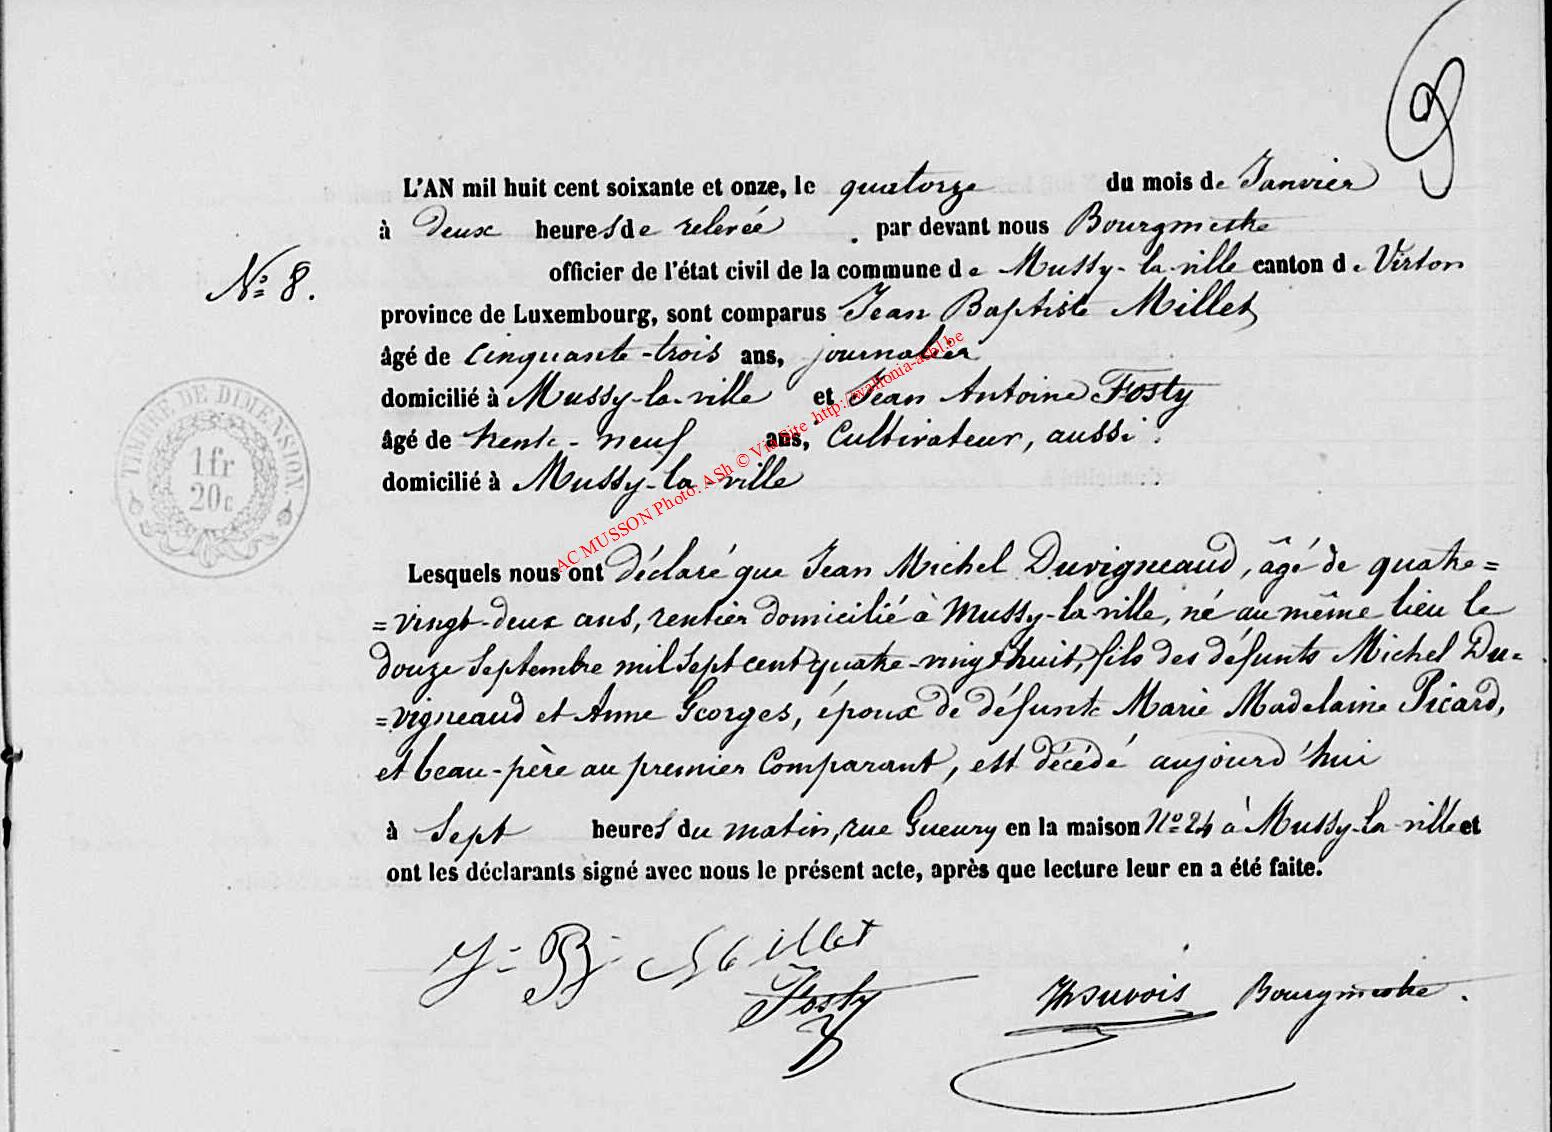 9
L'AN mil huit cent soixante et onze, le quatorze du mois de Janvier
à deux heures de relevée par devant nous Bourgmestre
N° 8.
officier de l'état civil de la commune de Mussy-la-ville canton de Virton
province de Luxembourg, sont comparus Jean Baptiste Millet
âgé de cinquante-trois ans, journalier
domicilié à Mussy-la-ville et Jean Antoine Fosty
âgé de trente-neuf ans, Cultivateur, aussi
domicilié à Mussy-la-ville
TIMBRE DE DIMENSION.
1 fr
20 c
AC MUSSON Photo: ASh © Via Site http://wallonia-asbl.be
Lesquels nous ont déclaré que Jean Michel Duvigneaud, âgé de quatre=
=vingt-deux ans, rentier domicilié à Mussy-la-ville, né au même lieu le
douze Septembre mil sept cent quatre-vingt huit, fils des défunts Michel Du=
=vigneaud et Anne Georges, époux de défunte Marie Madelaine Picard,
et beau-père au premier Comparant, est décédé aujourd'hui
à Sept heures du matin, rue Gueury en la maison N° 24 à Mussy-la-ville et
ont les déclarants signé avec nous le présent acte, après que lecture leur en a été faite.
J-B- Millet
Fosty
Bourgmestre.